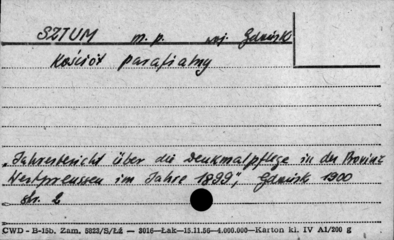 SZTUM m.p. woj. Gdańsk
Kościół parafialny
„Jahresbericht über die Denkmalpflege in der Provinz
Westpreussen im Jahre 1899", Gdańsk 1900
str. 2
CWD - B-15b. Zam. 5823/S/Łż — 3016—Łak—15.11.56—4.000.000—Karton kl. IV A1/200 g